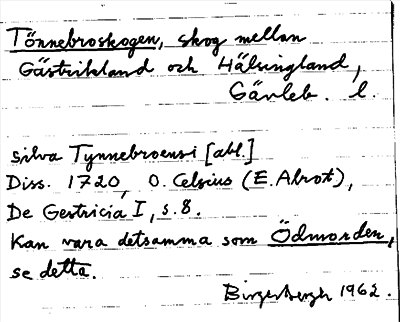 Tönnebroskogen, skog mellan
Gästrikland och Hälsingland,
Gävleb. l.
silva Tynnebroensi [abl.]
Diss. 1720, O. Celsius (E. Alrot),
De Gestricia I, s. 8.
Kan vara detsamma som Ödmorden,
se detta.
Birger Bergh 1962.